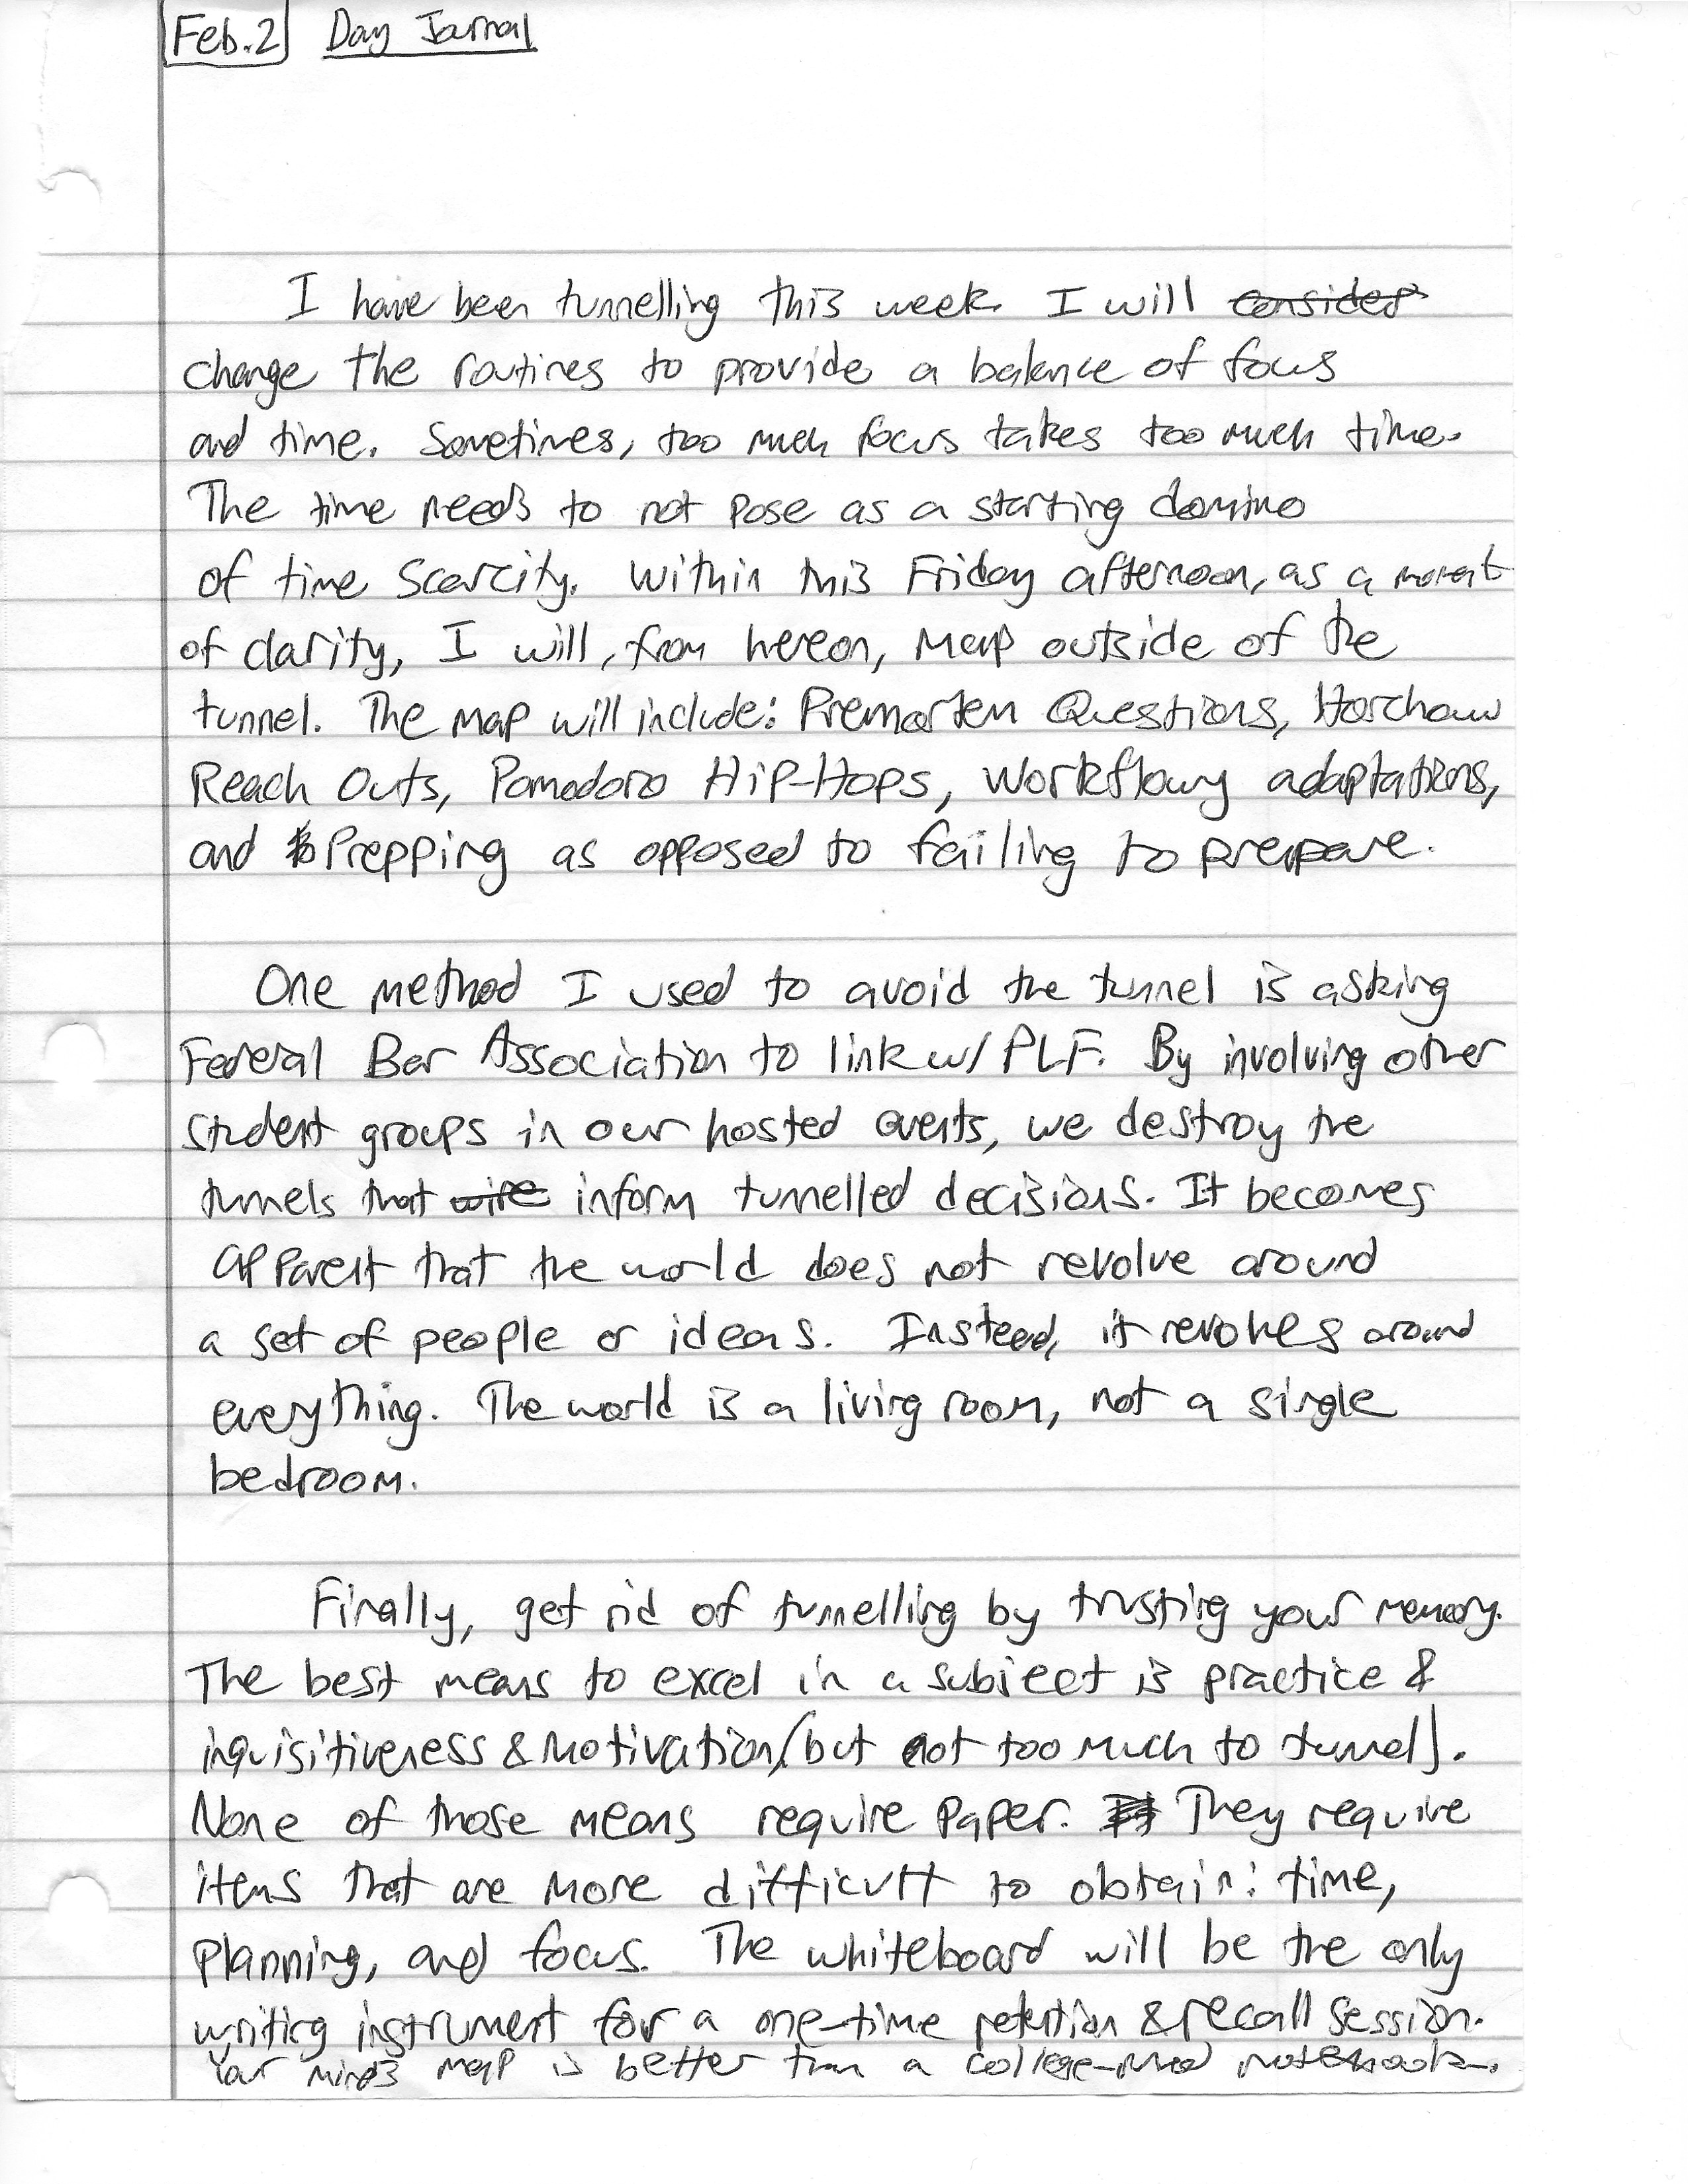 Feb. 2 Day Journal
I have been tunnelling this week. I will consider
change the routines to provide a balance of focus
and time. Sometimes, too much focus takes too much time.
The time needs to not pose as a starting domino
of time scarcity. Within this Friday afternoon, as a moment
of clarity, I will, from hereon, map outside of the
tunnel. The map will include: Premortem Questions, Horchow
Reach Outs, Pomodoro Hip-Hops, Workflowy adaptations,
and Prepping as opposed to failing to prepare.
One method I used to avoid the tunnel is asking
Federal Bar Association to link w/ PLF. By involving other
student groups in our hosted events, we destroy the
tunnels that wire inform tunnelled decisions. It becomes
apparent that the world does not revolve around
a set of people or ideas. Instead, it revolves around
everything. The world is a living room, not a single
bedroom.
Finally, get rid of tunnelling by trusting your memory.
The best means to excel in a subject is practice &
inquisitiveness & motivation (but not too much to tunnel).
None of those means require paper. They require
items that are more difficult to obtain: time,
planning, and focus. The whiteboard will be the only
writing instrument for a one-time retention & recall session.
Your mind's map is better than a college-ruled notebook.